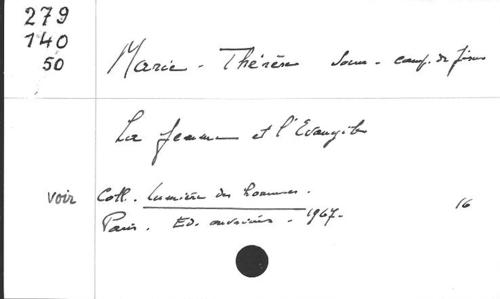 279
140
50
Marie-Thérèse Soeur - comp. de Jésus
La femme et l'Evangile
voir Coll. Lumière des hommes.
Paris. Ed. ouvrières - 1967-
16